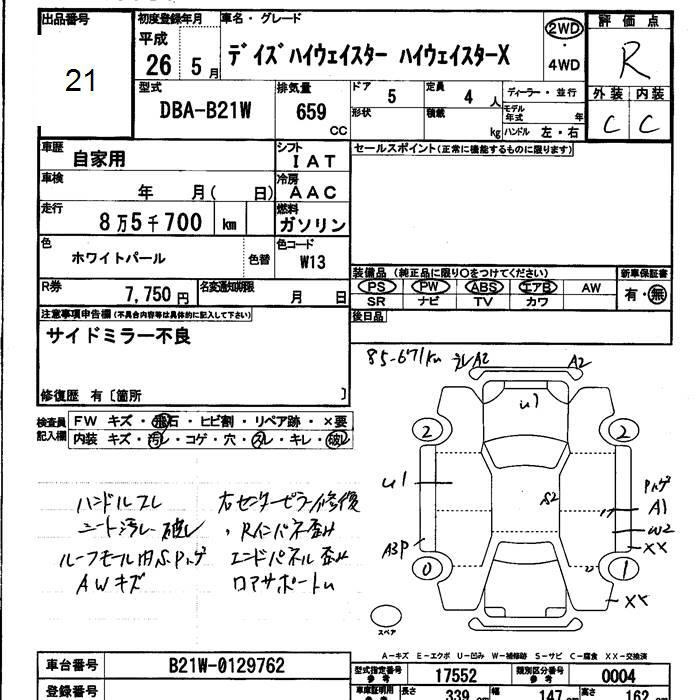 出品番号
21
初度登録年月
平成
26 5月
車名・グレード
デイズハイウェイスター ハイウェイスターX
2WD
・
4WD
評価点
R
型式
DBA-B21W
排気量
659
CC
ドア
5
定員
4人
形状
積載
kg
ディーラー・並行
モデル年式 年
ハンドル 左・右
外装 内装
C C
車歴
自家用
シフト
IAT
車検
年 月( 日)
冷房
AAC
走行
8万5千700 km
燃料
ガソリン
色
ホワイトパール
色替
色コード
W13
R券
7,750円
名変通知期限
月 日
セールスポイント(正常に機能するものに限ります)
装備品 (純正品に限り○をつけてください)
PS PW ABS エアB AW
SR ナビ TV カワ
新車保証書
有・無
後日品
注意事項申告欄(不具合内容等は具体的に記入して下さい)
サイドミラー不良
修復歴 有〔箇所 〕
検査員
記入欄
FW キズ・飛石・ヒビ割・リペア跡・×要
内装 キズ・汚レ・コゲ・穴・スレ・キレ・破レ
ハンドルスレ
シート汚レ破レ
AWキズ
右センターピラー修復
Rインパネ歪み
エンドパネル歪み
ロアサポートu
85-671km
A2
A2
u1
2
2
u1
S2
A1
W2
XX
A3P
0
1
XX
スペア
A-キズ E-エクボ U-凹み W-補修跡 S-サビ C-腐食 XX-交換済
車台番号
B21W-0129762
登録番号
型式指定番号
参考
17552
類別区分番号
参考
0004
車庫証明用
参考
長さ
339 cm
幅
147 cm
高さ
162 cm